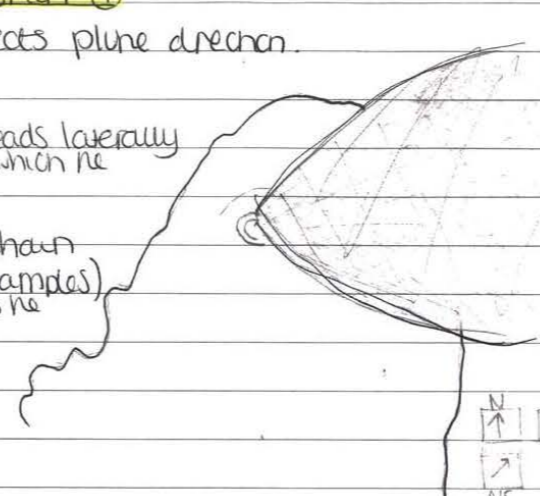 cts plume direction.
eads laterally
which he
hain
amples)
he
N
NE